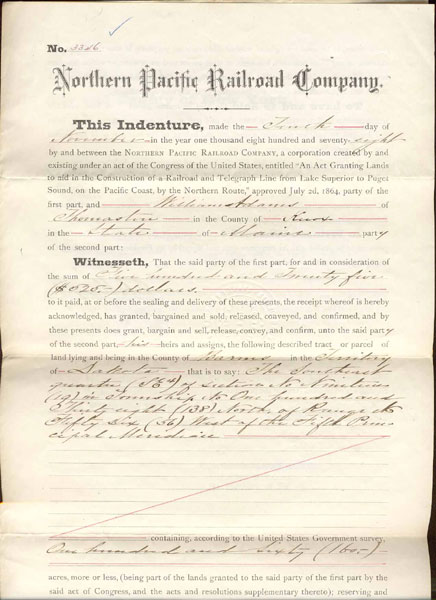 No. 3346
Northern Pacific Railroad Company.
This Indenture, made the Tenth day of
November in the year one thousand eight hundred and seventy-eight
by and between the NORTHERN PACIFIC RAILROAD COMPANY, a corporation created by and
existing under an act of the Congress of the United States, entitled "An Act Granting Lands
to aid in the Construction of a Railroad and Telegraph Line from Lake Superior to Puget
Sound, on the Pacific Coast, by the Northern Route," approved July 2d, 1864, party of the
first part, and William Adams of
Thomaston in the County of Knox
in the State of Maine party
of the second part:
Witnesseth, That the said party of the first part, for and in consideration of
the sum of Five hundred and Twenty five
($525-) dollars.
to it paid, at or before the sealing and delivery of these presents, the receipt whereof is hereby
acknowledged, has granted, bargained and sold, released, conveyed, and confirmed, and by
these presents does grant, bargain and sell, release, convey, and confirm, unto the said party
of the second part, his heirs and assigns, the following described tract or parcel of
land lying and being in the County of Barnes in the Territory
of Dakota that is to say: The Southeast
quarter (SE4) of Section No Nineteen
(19) in Township No One hundred and
Thirty eight (138) North, of Range No
Fifty Six (56) West of the Fifth Prin
cipal Meridian
containing, according to the United States Government survey,
One hundred and Sixty (160-)
acres, more or less, (being part of the lands granted to the said party of the first part by the
said act of Congress, and the acts and resolutions supplementary thereto); reserving and